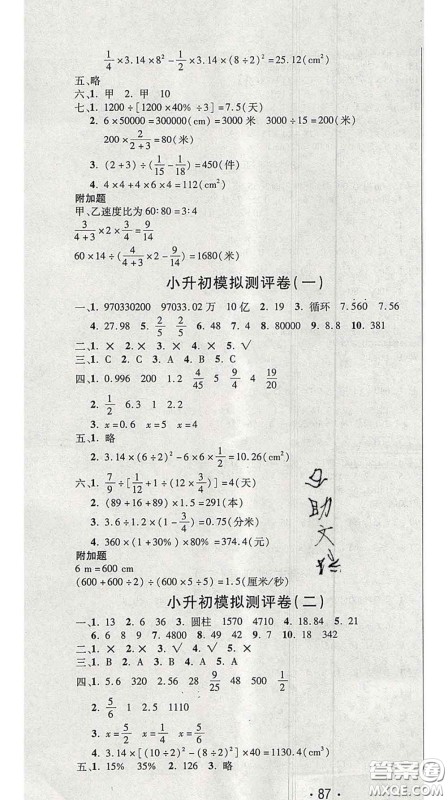 1/4×3.14×8²-1/2×3.14×(8÷2)²=25.12(cm²)
五、略
六、1. 甲  2. 甲
七、1. 1200÷[1200×40%÷3]=7.5(天)
2. 6×50000=300000(cm)=3000(米)  3000÷15=200(米)
200×2/(2+3)=80(米)
3. (2+3)÷(1/15-1/18)=450(件)
4. 4×4+4×6×4=112(cm²)
附加题
甲、乙速度比为60:80=3:4
3/(4+3)×2×3/4=9/14
60×14÷(3/(4+3)×2-9/14)=1680(米)
小升初模拟测评卷(一)
一、1. 970330200  97033.02万  10亿  2. 19  3. 循环  7.560  7.56
4. 27.98  5. 2/5  2/5  6. 2  7. 4  8. 80000  9. 8.8  10. 381
二、1. ×  2. ×  3. ×  4. ×  5. √
三、1. C  2. A  3. A  4. B  5. C
四、1. 0.996  200  4.2  4/45  5  9/50  4  19/20
2. 1/2  6.3  2  1
3. x=0.6  x=5  x=4
五、1. 略
2. 3.14×(6÷2)²-6×6×1/2=10.26(cm²)
六、1. 7/9÷[1/12+1÷(12×3/4)]=4(天)
2. (89+16+89)×1.5=291(本)
3. 3.6÷1.2×(1-3/4)=0.75(分米)
4. 360×(1-20%)×1.3=374.4(元)
附加题
6 m=600 cm
(600+600÷2)÷(600×5÷5)=1.5(厘米/秒)
小升初模拟测评卷(二)
一、1. 13  2. 6  36  3. 圆柱  1570  4710  4. 18.84  5. 21
6. 9  8  7. 9  4800  8. 49  49  9. 2  87  10. 1  1
二、1. ×  2. ×  3. √  4. √  5. ×
四、1. 0.56  1020  2.56  28  9/25  48  500  50
2. 5/6  1  2  1
3. x=1/2  x=30  x=5/6
4. 3.14×[(10÷2)²-(8÷2)²]×40=1130.4(cm²)
五、1. 15%  35%  2. 126  3. 略
· 87 ·
答案圈
MXQE.COM